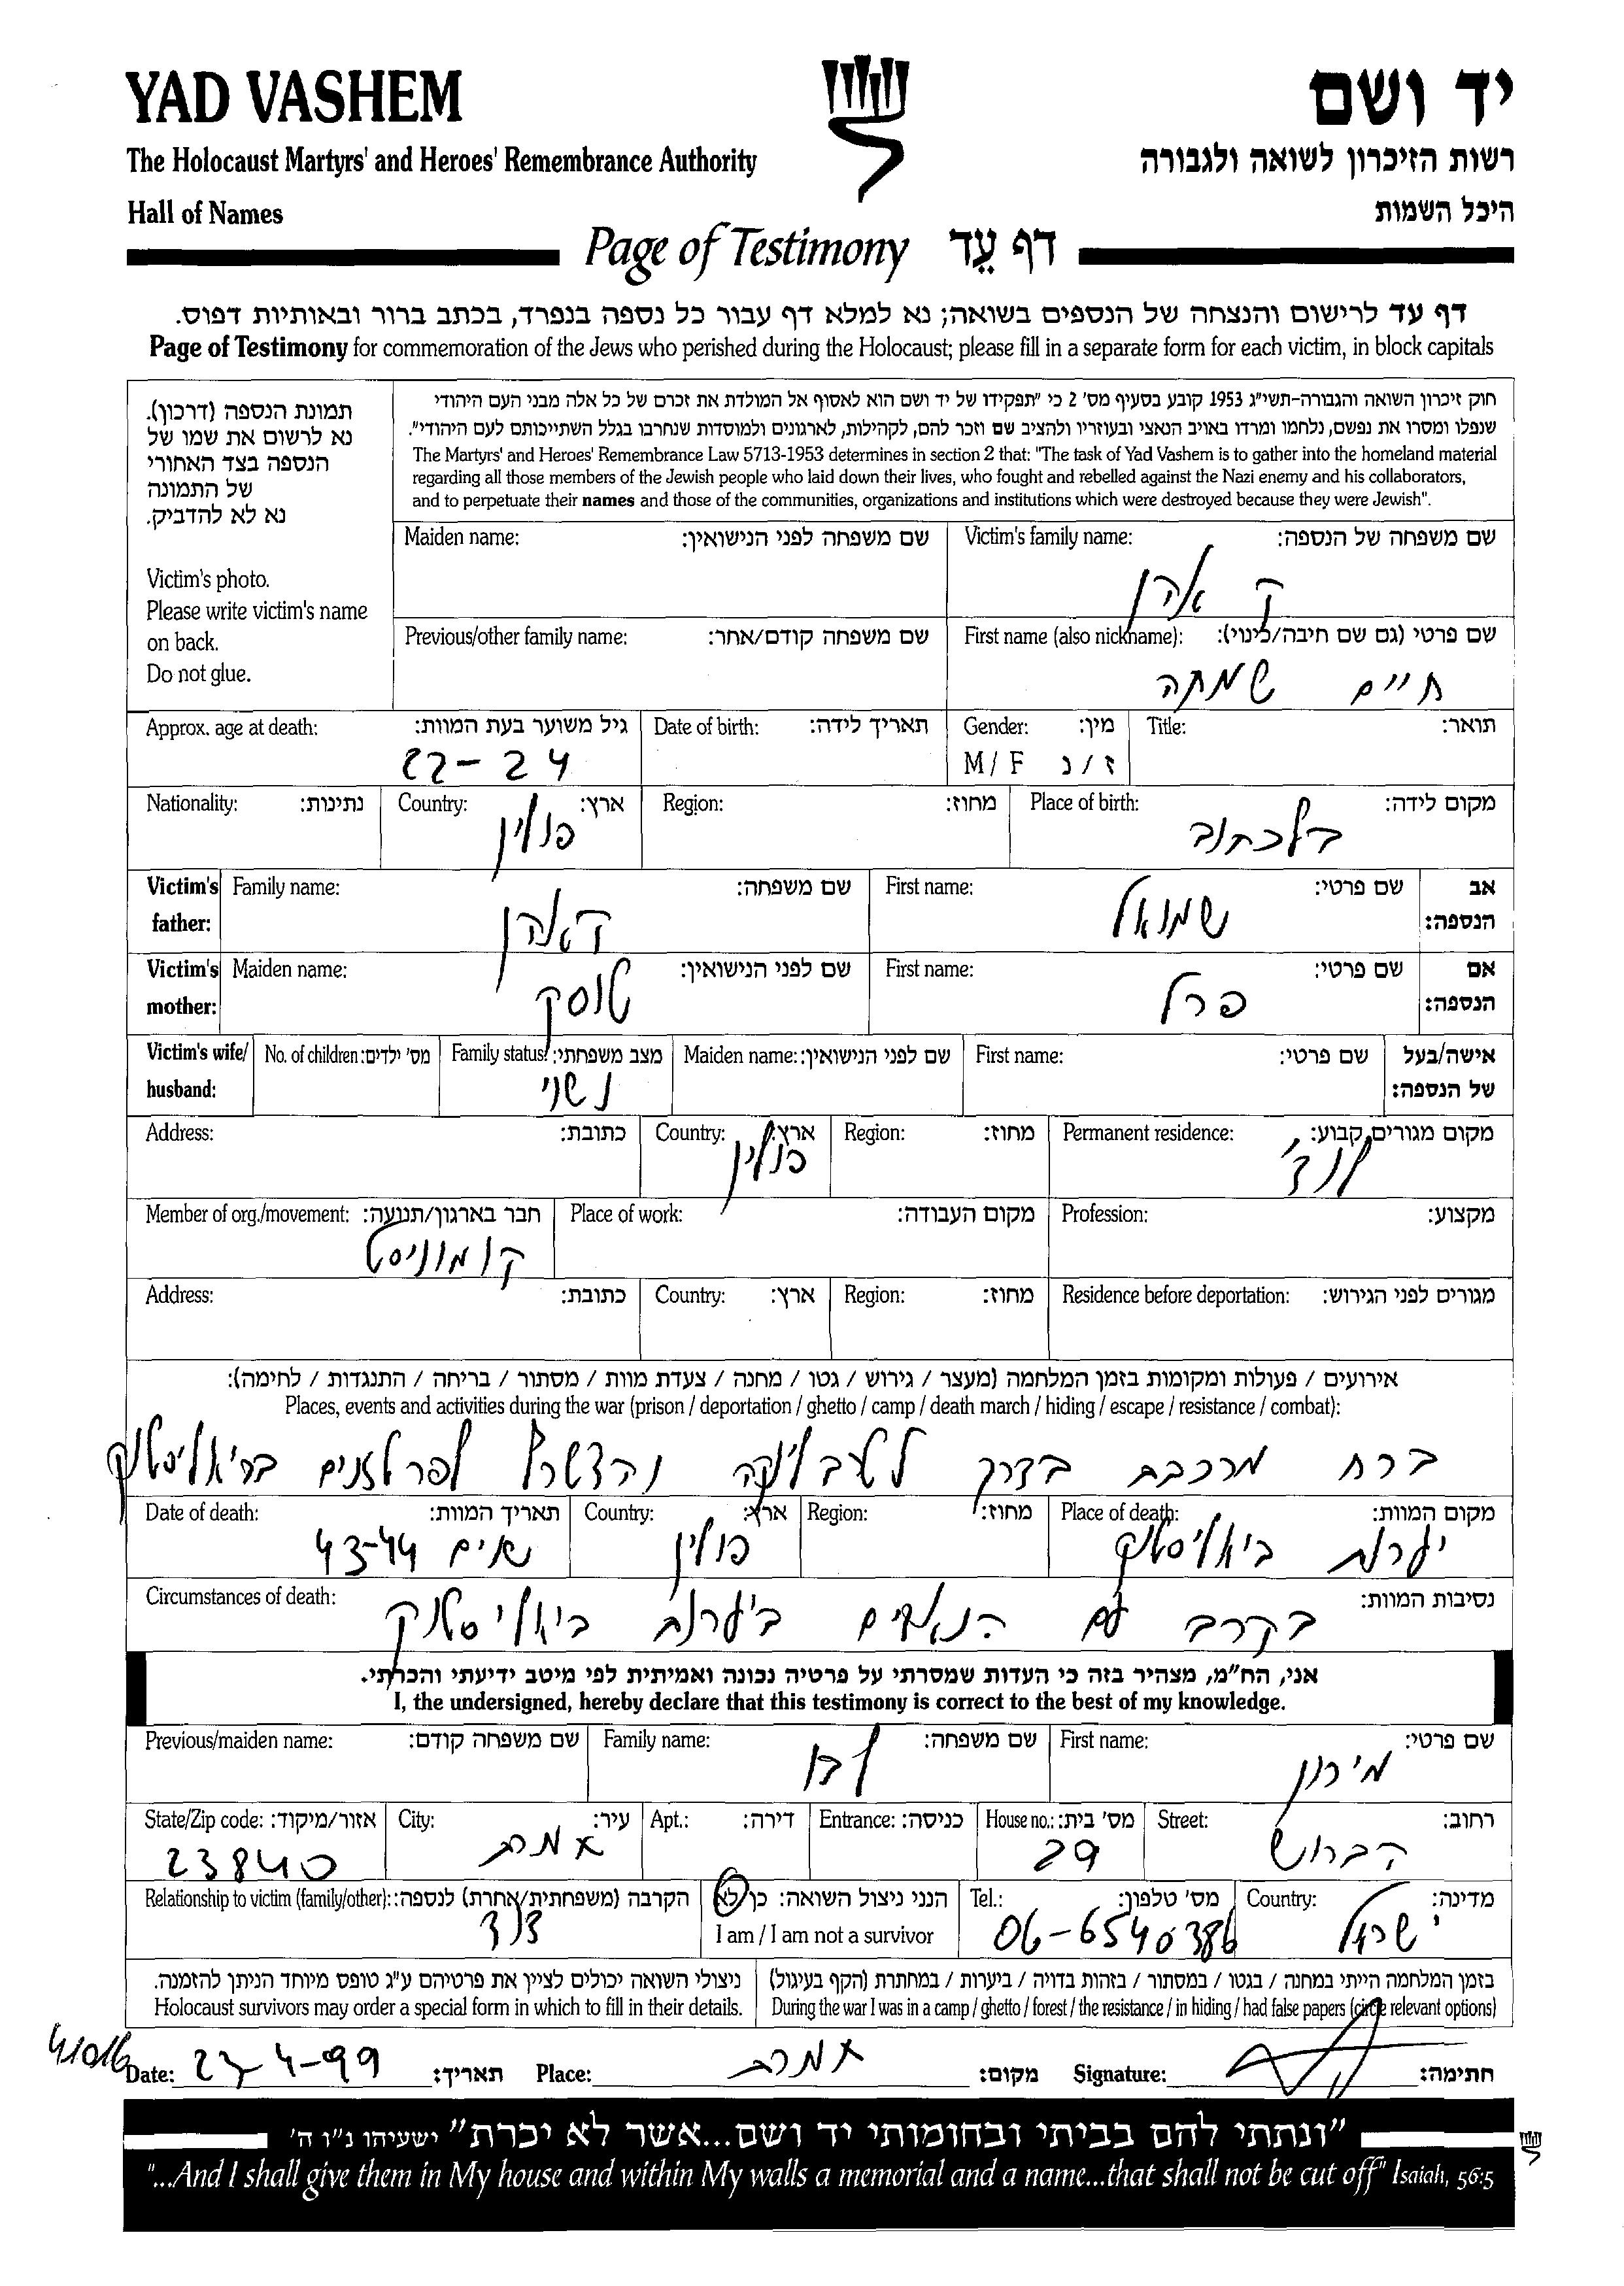 YAD VASHEM
יד ושם
The Holocaust Martyrs' and Heroes' Remembrance Authority
רשות הזיכרון לשואה ולגבורה
Hall of Names
היכל השמות
Page of Testimony דף עֵד
דף עד לרישום והנצחה של הנספים בשואה; נא למלא דף עבור כל נספה בנפרד, בכתב ברור ובאותיות דפוס.
Page of Testimony for commemoration of the Jews who perished during the Holocaust; please fill in a separate form for each victim, in block capitals
תמונת הנספה (דרכון).
נא לרשום את שמו של
הנספה בצד האחורי
של התמונה
נא לא להדביק.
Victim's photo.
Please write victim's name
on back.
Do not glue.
חוק זיכרון השואה והגבורה-תשי"ג 1953 קובע בסעיף מס' 2 כי "תפקידו של יד ושם הוא לאסוף אל המולדת את זכרם של כל אלה מבני העם היהודי
שנפלו ומסרו את נפשם, נלחמו ומרדו באויב הנאצי ובעוזריו ולהציב שם וזכר להם, לקהילות, לארגונים ולמוסדות שנחרבו בגלל השתייכותם לעם היהודי".
The Martyrs' and Heroes' Remembrance Law 5713-1953 determines in section 2 that: "The task of Yad Vashem is to gather into the homeland material
regarding all those members of the Jewish people who laid down their lives, who fought and rebelled against the Nazi enemy and his collaborators,
and to perpetuate their names and those of the communities, organizations and institutions which were destroyed because they were Jewish".
Victim's family name: שם משפחה של הנספה:
Maiden name: שם משפחה לפני הנישואין:
First name (also nickname): שם פרטי (גם שם חיבה/כינוי):
חיים שמחה
Previous/other family name: שם משפחה קודם/אחר:
Title: תואר:
Gender: מין:
M / F ז / נ
Date of birth: תאריך לידה:
Approx. age at death: גיל משוער בעת המוות:
22-24
Place of birth: מקום לידה:
בלכתוב
Region: מחוז:
Country: ארץ:
פולין
Nationality: נתינות:
Victim's father: אב הנספה:
First name: שם פרטי:
שמואל
Family name: שם משפחה:
Victim's mother: אם הנספה:
First name: שם פרטי:
פרל
Maiden name: שם לפני הנישואין:
טוסק
Victim's wife/ husband: אישה/בעל של הנספה:
First name: שם פרטי:
Maiden name: שם לפני הנישואין:
Family status: מצב משפחתי:
נשוי
No. of children: מס' ילדים:
Permanent residence: מקום מגורים קבוע:
לודז'
Region: מחוז:
Country: ארץ:
פולין
Address: כתובת:
Profession: מקצוע:
Place of work: מקום העבודה:
Member of org./movement: חבר בארגון/תנועה:
קומוניסט
Residence before deportation: מגורים לפני הגירוש:
Region: מחוז:
Country: ארץ:
Address: כתובת:
אירועים / פעולות ומקומות בזמן המלחמה (מעצר / גירוש / גטו / מחנה / צעדת מוות / מסתור / בריחה / התנגדות / לחימה):
Places, events and activities during the war (prison / deportation / ghetto / camp / death march / hiding / escape / resistance / combat):
ברח מרכבת בדרך לטרבלינקה והצטרף לפרטזנים בביאליסטוק
Place of death: מקום המוות:
יערות ביאליסטוק
Region: מחוז:
Country: ארץ:
פולין
Date of death: תאריך המוות:
שנים 43-44
Circumstances of death: נסיבות המוות:
בקרב עם הנאצים ביערות ביאליסטוק
אני, הח"מ, מצהיר בזה כי העדות שמסרתי על פרטיה נכונה ואמיתית לפי מיטב ידיעתי והכרתי.
I, the undersigned, hereby declare that this testimony is correct to the best of my knowledge.
First name: שם פרטי:
מירון
Family name: שם משפחה:
Previous/maiden name: שם משפחה קודם:
Street: רחוב:
הברוש
House no.: מס' בית:
29
Entrance: כניסה:
Apt.: דירה:
City: עיר:
אמרת
State/Zip code: אזור/מיקוד:
23840
Country: מדינה:
ישראל
Tel.: מס' טלפון:
06-6540386
הנני ניצול השואה: כן/לא
I am / I am not a survivor
Relationship to victim (family/other): הקרבה (משפחתית/אחרת) לנספה:
דוד
בזמן המלחמה הייתי במחנה / בגטו / במסתור / בזהות בדויה / ביערות / במחתרת (הקף בעיגול)
During the war I was in a camp / ghetto / forest / the resistance / in hiding / had false papers (circle relevant options)
ניצולי השואה יכולים לציין את פרטיהם ע"ג טופס מיוחד הניתן להזמנה.
Holocaust survivors may order a special form in which to fill in their details.
41016
Date: 23-4-99 תאריך: Place: אמרת מקום: Signature: חתימה:
"ונתתי להם בביתי ובחומותי יד ושם...אשר לא יכרת" ישעיהו נ"ו ה'
"...And I shall give them in My house and within My walls a memorial and a name...that shall not be cut off" Isaiah, 56:5